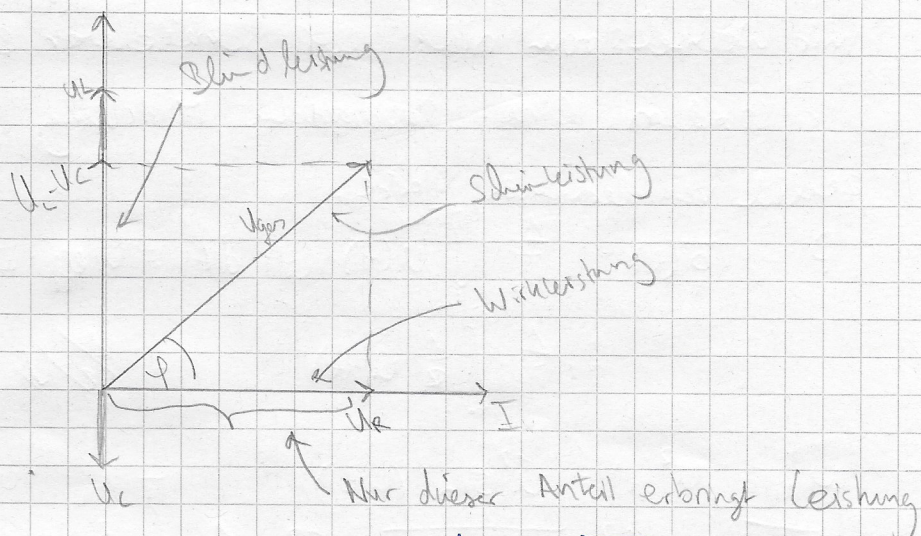 Blindleistung
UL
UL-UC
Uges
Scheinleistung
Wirkleistung
φ
UR
I
UC
Nur dieser Anteil erbringt Leistung